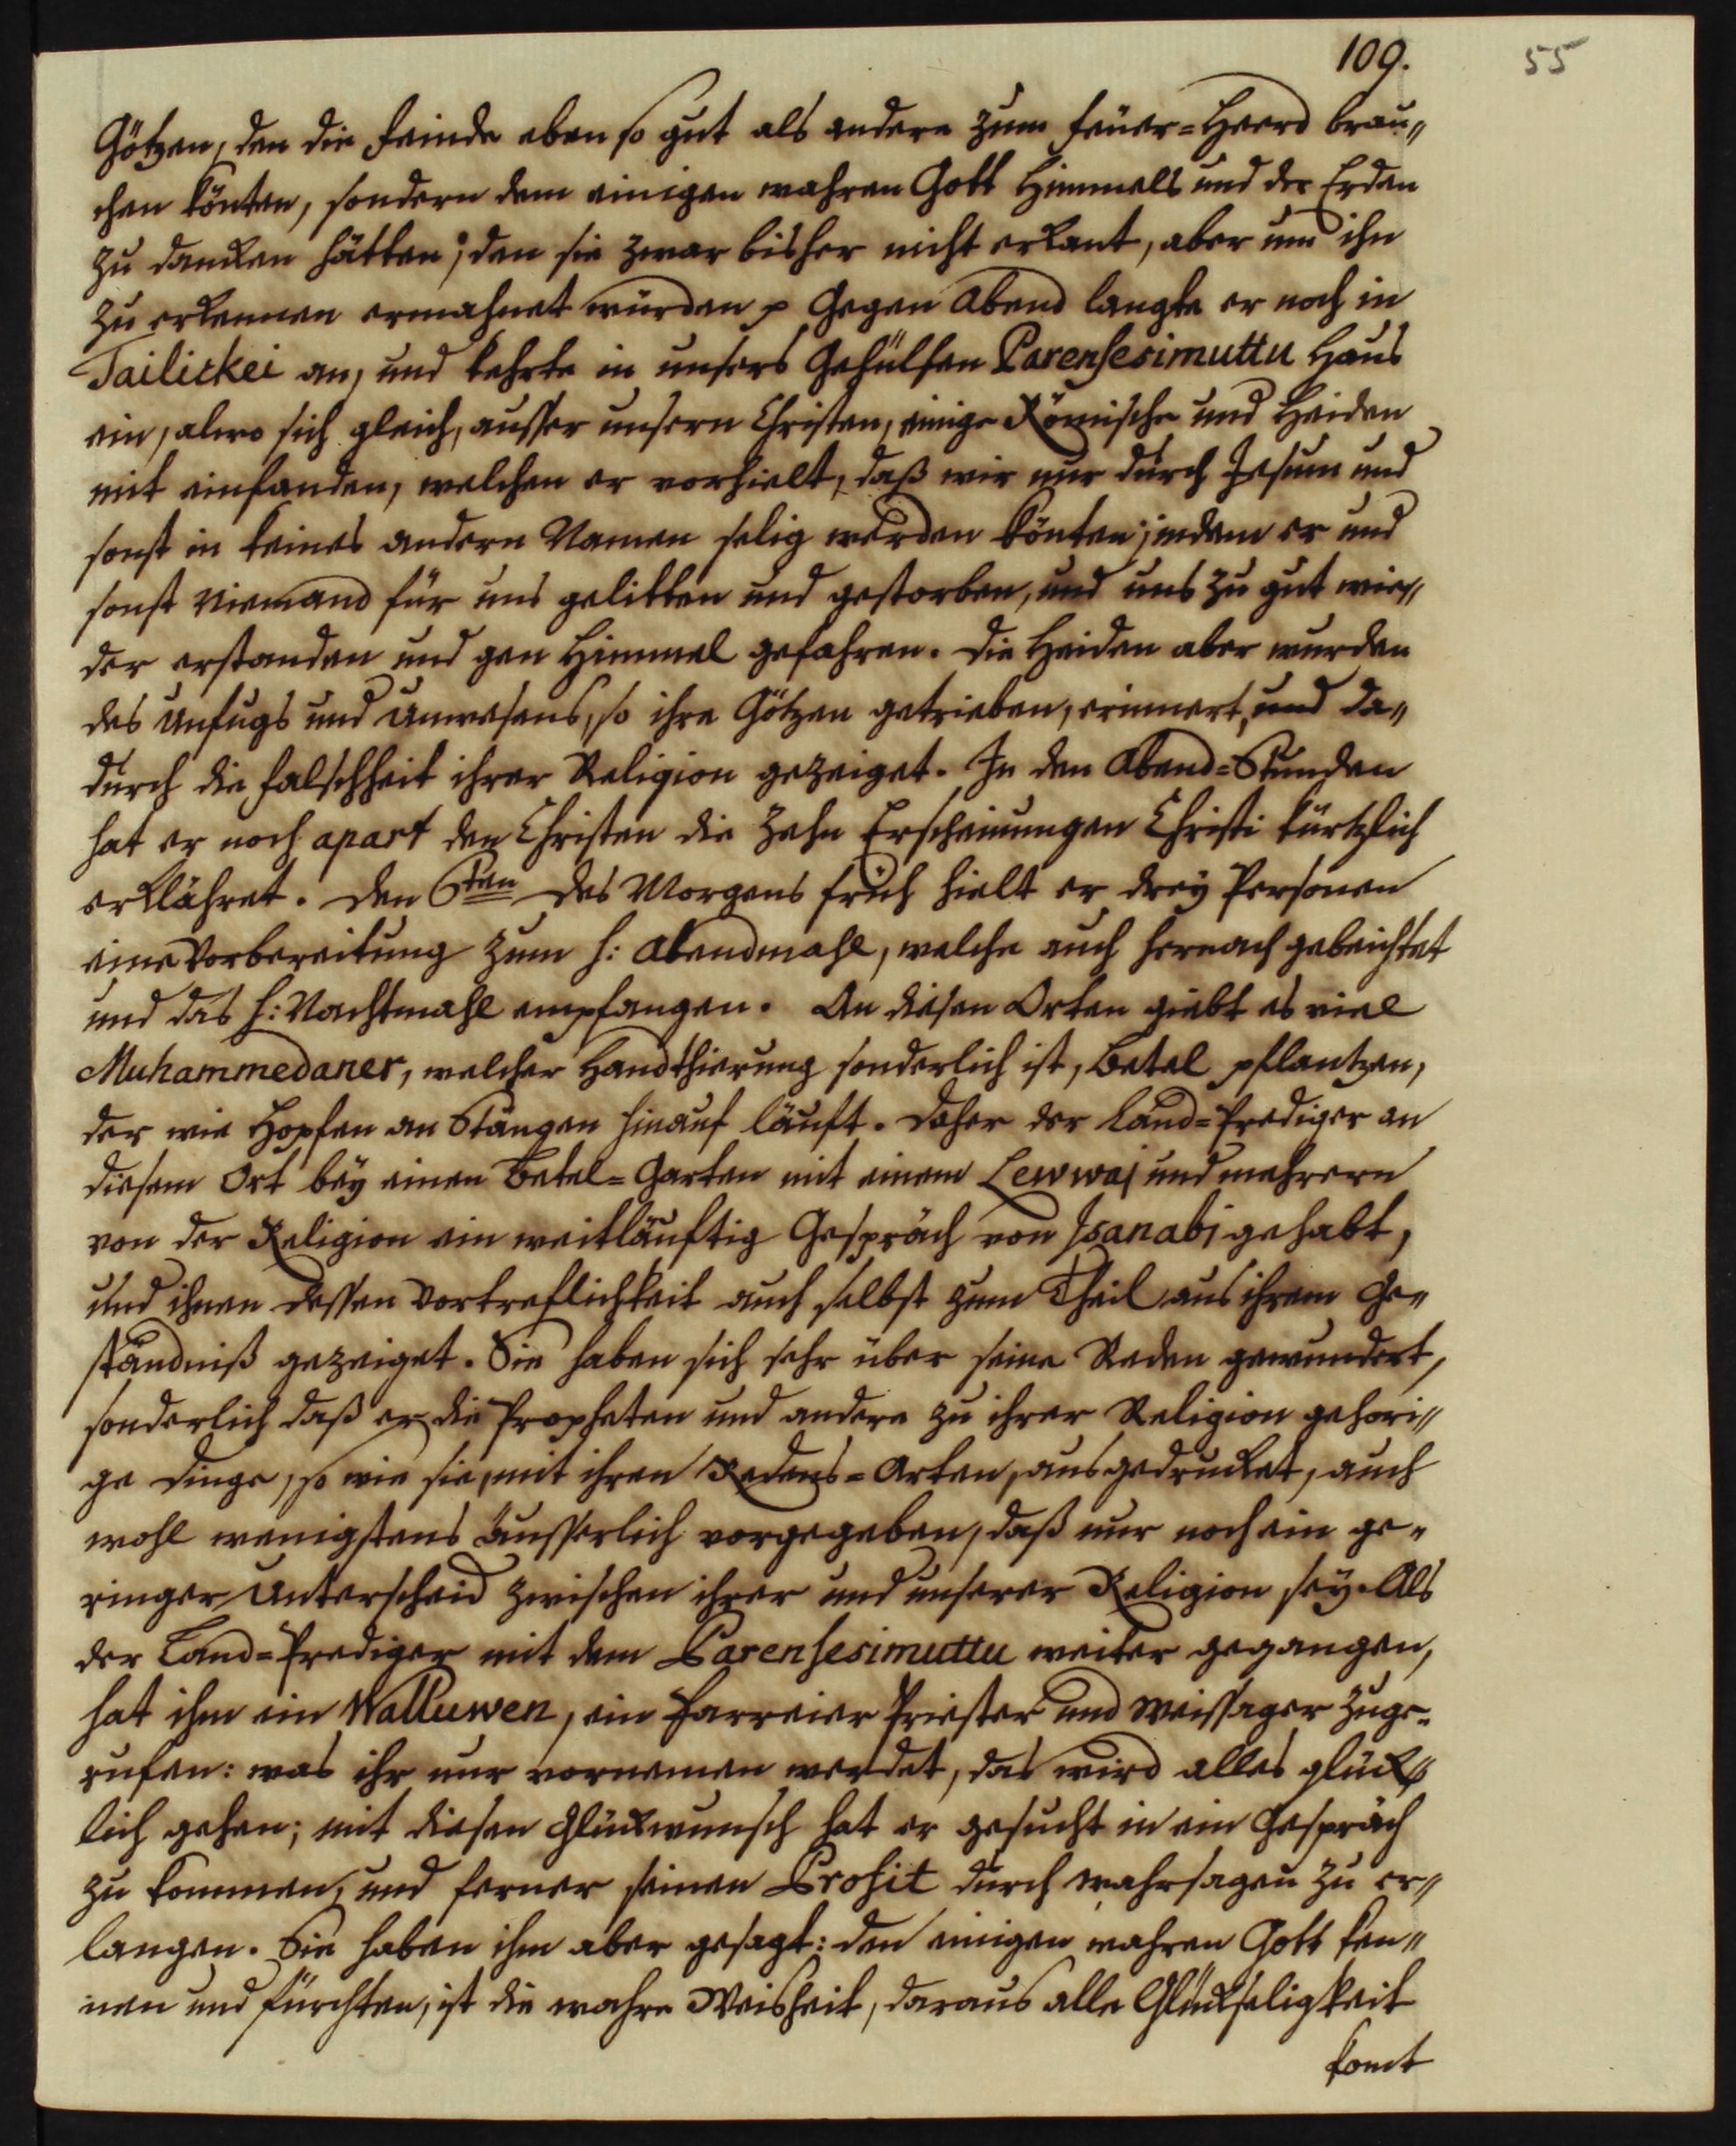 109.
55
Götzen, den die Feinde eben so gut als andere zum Feuer=Heerd brau„
chen könten, sondern dem einigen wahren Gott Himmels und der Erden
zu dancken hätten; den sie zwar bisher nicht erkant, aber um ihn
zu erkennen ermahnet würden p Gegen Abend langte er noch in
Tailickei an, und kehrte in unsers Gehülfen Parensesimuttu Haus
ein, alwo sich gleich, ausser unsern Christen, einige Römische und Heiden
mit einfanden, welchen er vorhielt, daß wir nur durch Jesum und
sonst in keines andern Namen selig werden könten; indem er und
sonst Niemand für uns gelitten und gestorben, und uns zu gut wie„
der erstanden und gen Himmel gefahren. Die Heiden aber wurden
des Unfugs und Unwesens, so ihre Götzen getrieben, erinnert, und da„
durch die Falschheit ihrer Religion gezeiget. In den Abend=Stunden
hat er noch apart den Christen die Zehn Erscheinungen Christi kürtzlich
erklähret. Den 6ten des Morgens früh hielt er drey Personen
eine Vorbereitung zum H: Abendmahl, welche auch hernach gebeichtet
und das H: Nachtmahl empfangen. An diesen Orten giebt es viel
Muhammedaner, welcher Handthierung sonderlich ist, Betel pflantzen,
der wie Hopfen an Stangen hinauf läuft. Daher der Land=Prediger an
diesem Ort bey einen Betel=Garten mit einem Lewwai und mehrern
von der Religion ein weitläuftig Gespräch von Isanabi gehabt,
und ihnen dessen Vortreflichkeit auch selbst zum Theil aus ihrem Ge„
ständniß gezeiget. Sie haben sich sehr über seine Reden gewundert,
sonderlich daß er die Propheten und andere zu ihrer Religion gehöri„
ge Dinge, so wie sie, mit ihren Redens=Arten, ausgedrucket, auch
wohl wenigstens äusserlich vorgegeben, daß nur noch ein ge„
ringer Unterscheid zwischen ihrer und unserer Religion sey. Als
der Land=Prediger mit dem Parensesimuttu weiter gegangen,
hat ihm ein Walluwen, ein Parreier Priester und Weissager zuge„
rufen: was ihr nur vornemen werdet, das wird alles glück„
lich gehen; mit diesen Glückwunsch hat er gesucht in ein Gespräch
zu kommen, und ferner seinen Profit durch wahrsagen zu er„
langen. Sie haben ihm aber gesagt: den einigen wahren Gott ken„
nen und fürchten, ist die wahre Weisheit, daraus alle Glückseligkeit
komt